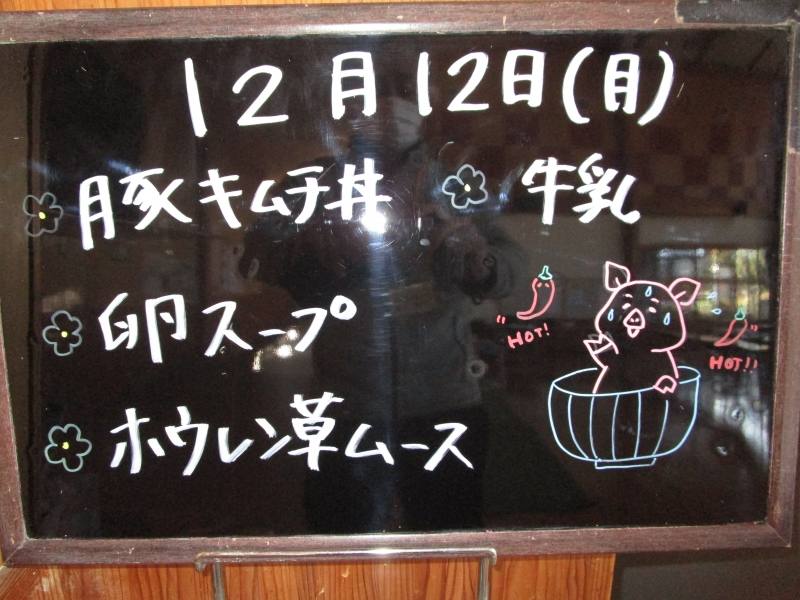 12月12日(月)
豚キムチ丼
牛乳
卵スープ
ホウレン草ムース
HOT!
HOT!!